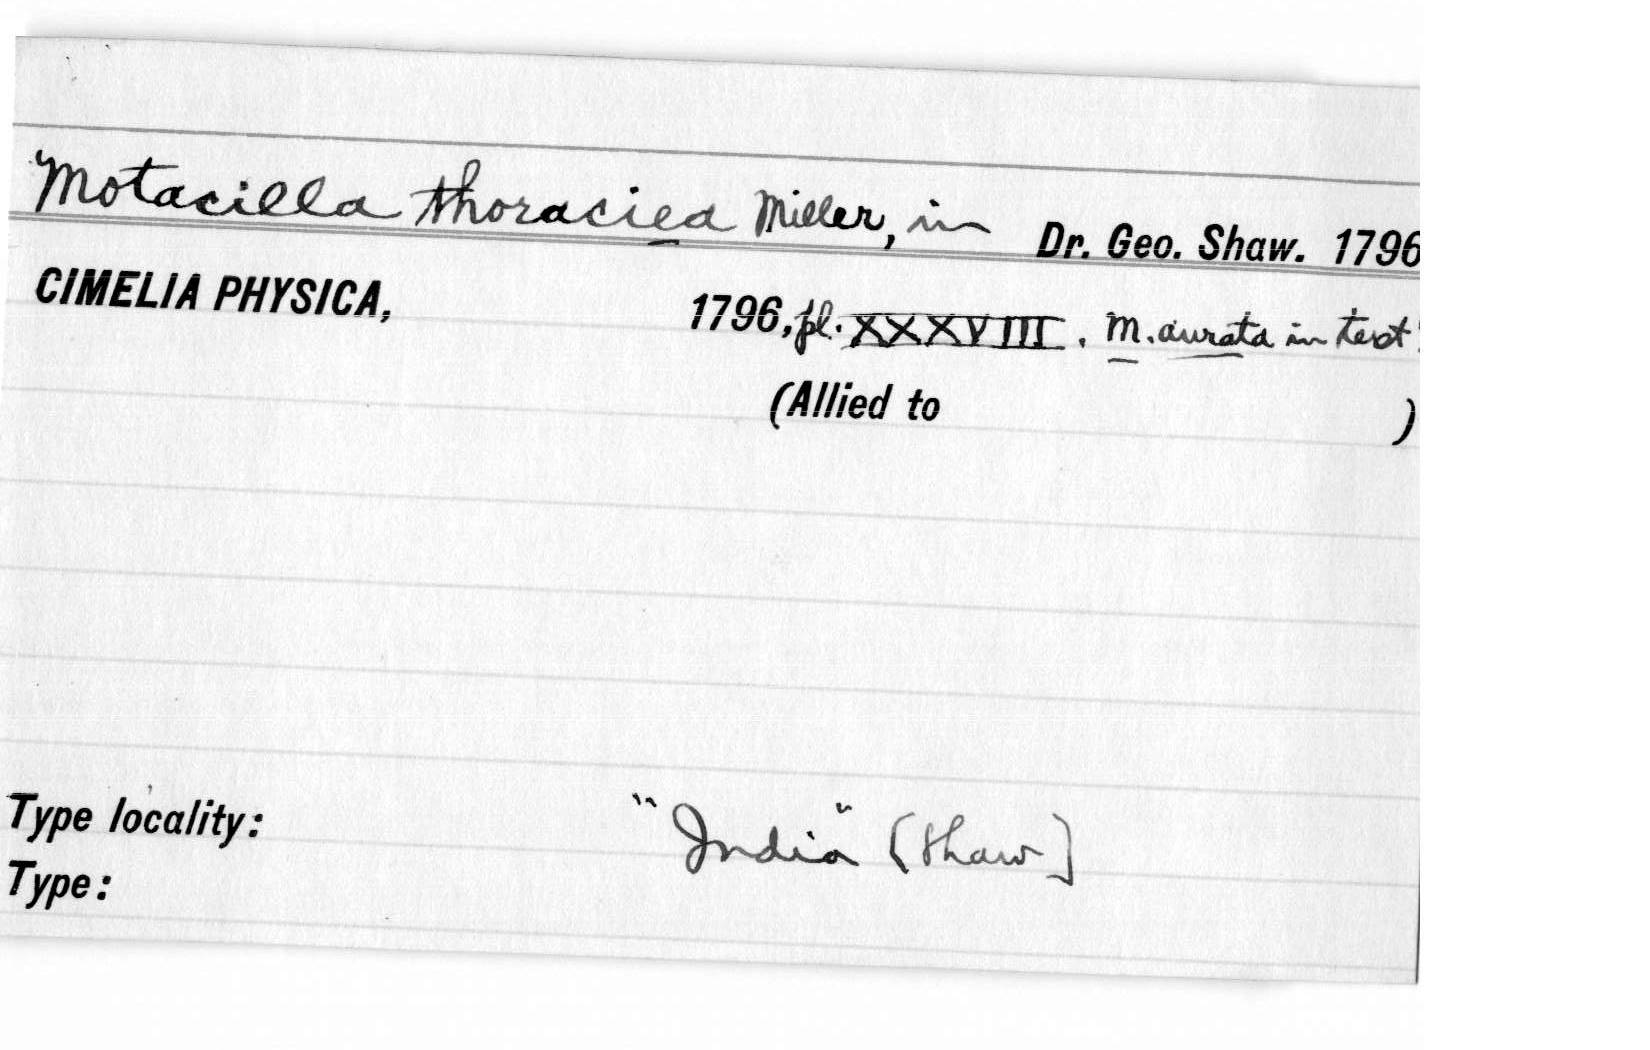 Motacilla thoraciea Miller, in Dr. Geo. Shaw. 1796
CIMELIA PHYSICA, 1796, pl. XXXVIII. M. aurata in text!
(Allied to )
Type locality: "India" [Shaw]
Type: